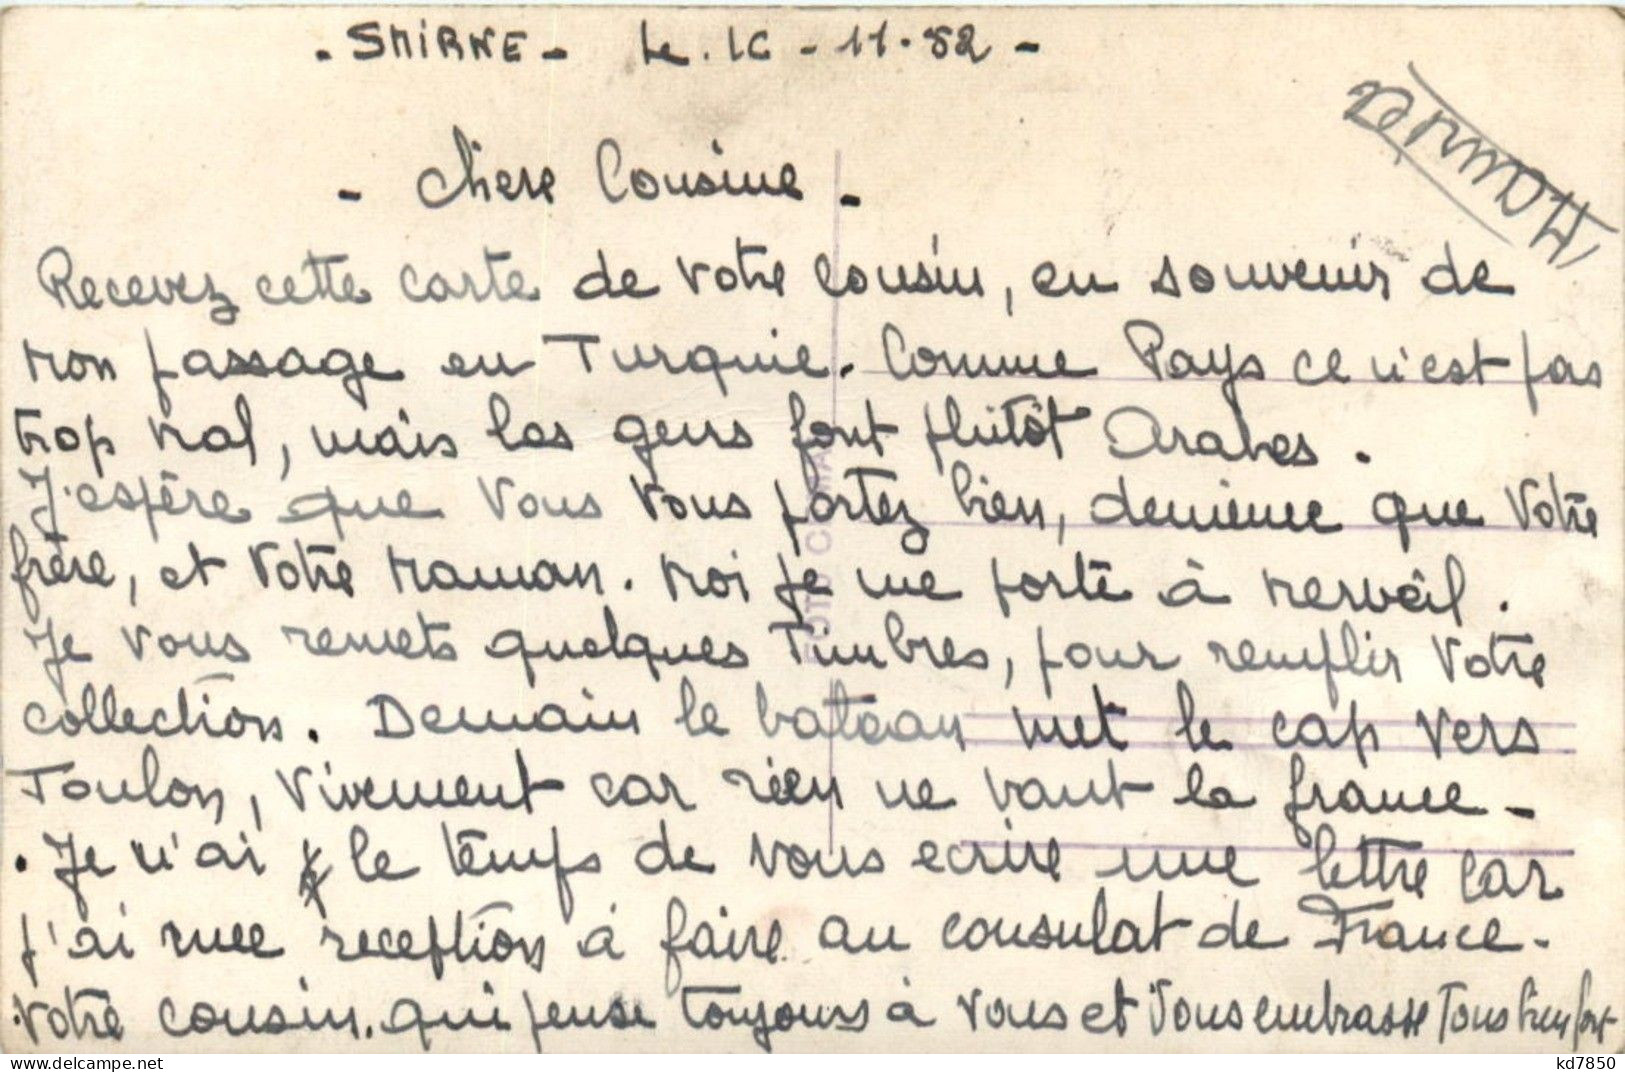 - SMIRNE - Le. 16 - 11 - 52 -
- Chere Cousine -
Recevez cette carte de votre cousin, en souvenir de
mon passage en Turquie. Comme Pays ce n'est pas
trop mal, mais les gens font plutôt Arabes.
J'espère que Vous Vous portez bien, de même que Votre
frère, et Votre Maman. Moi je me porte à merveil.
Je vous remets quelques Timbres, pour remplir Votre
collection. Demain le bateau met le cap vers
Toulon, Vivement car rien ne vaut la france -
. Je n'ai le temps de vous ecrire une lettre car
j'ai une reception à faire au consulat de France -
. Votre cousin. qui pense toujours à vous et Vous embrasse Tous bien fort
FOTO
kd7850